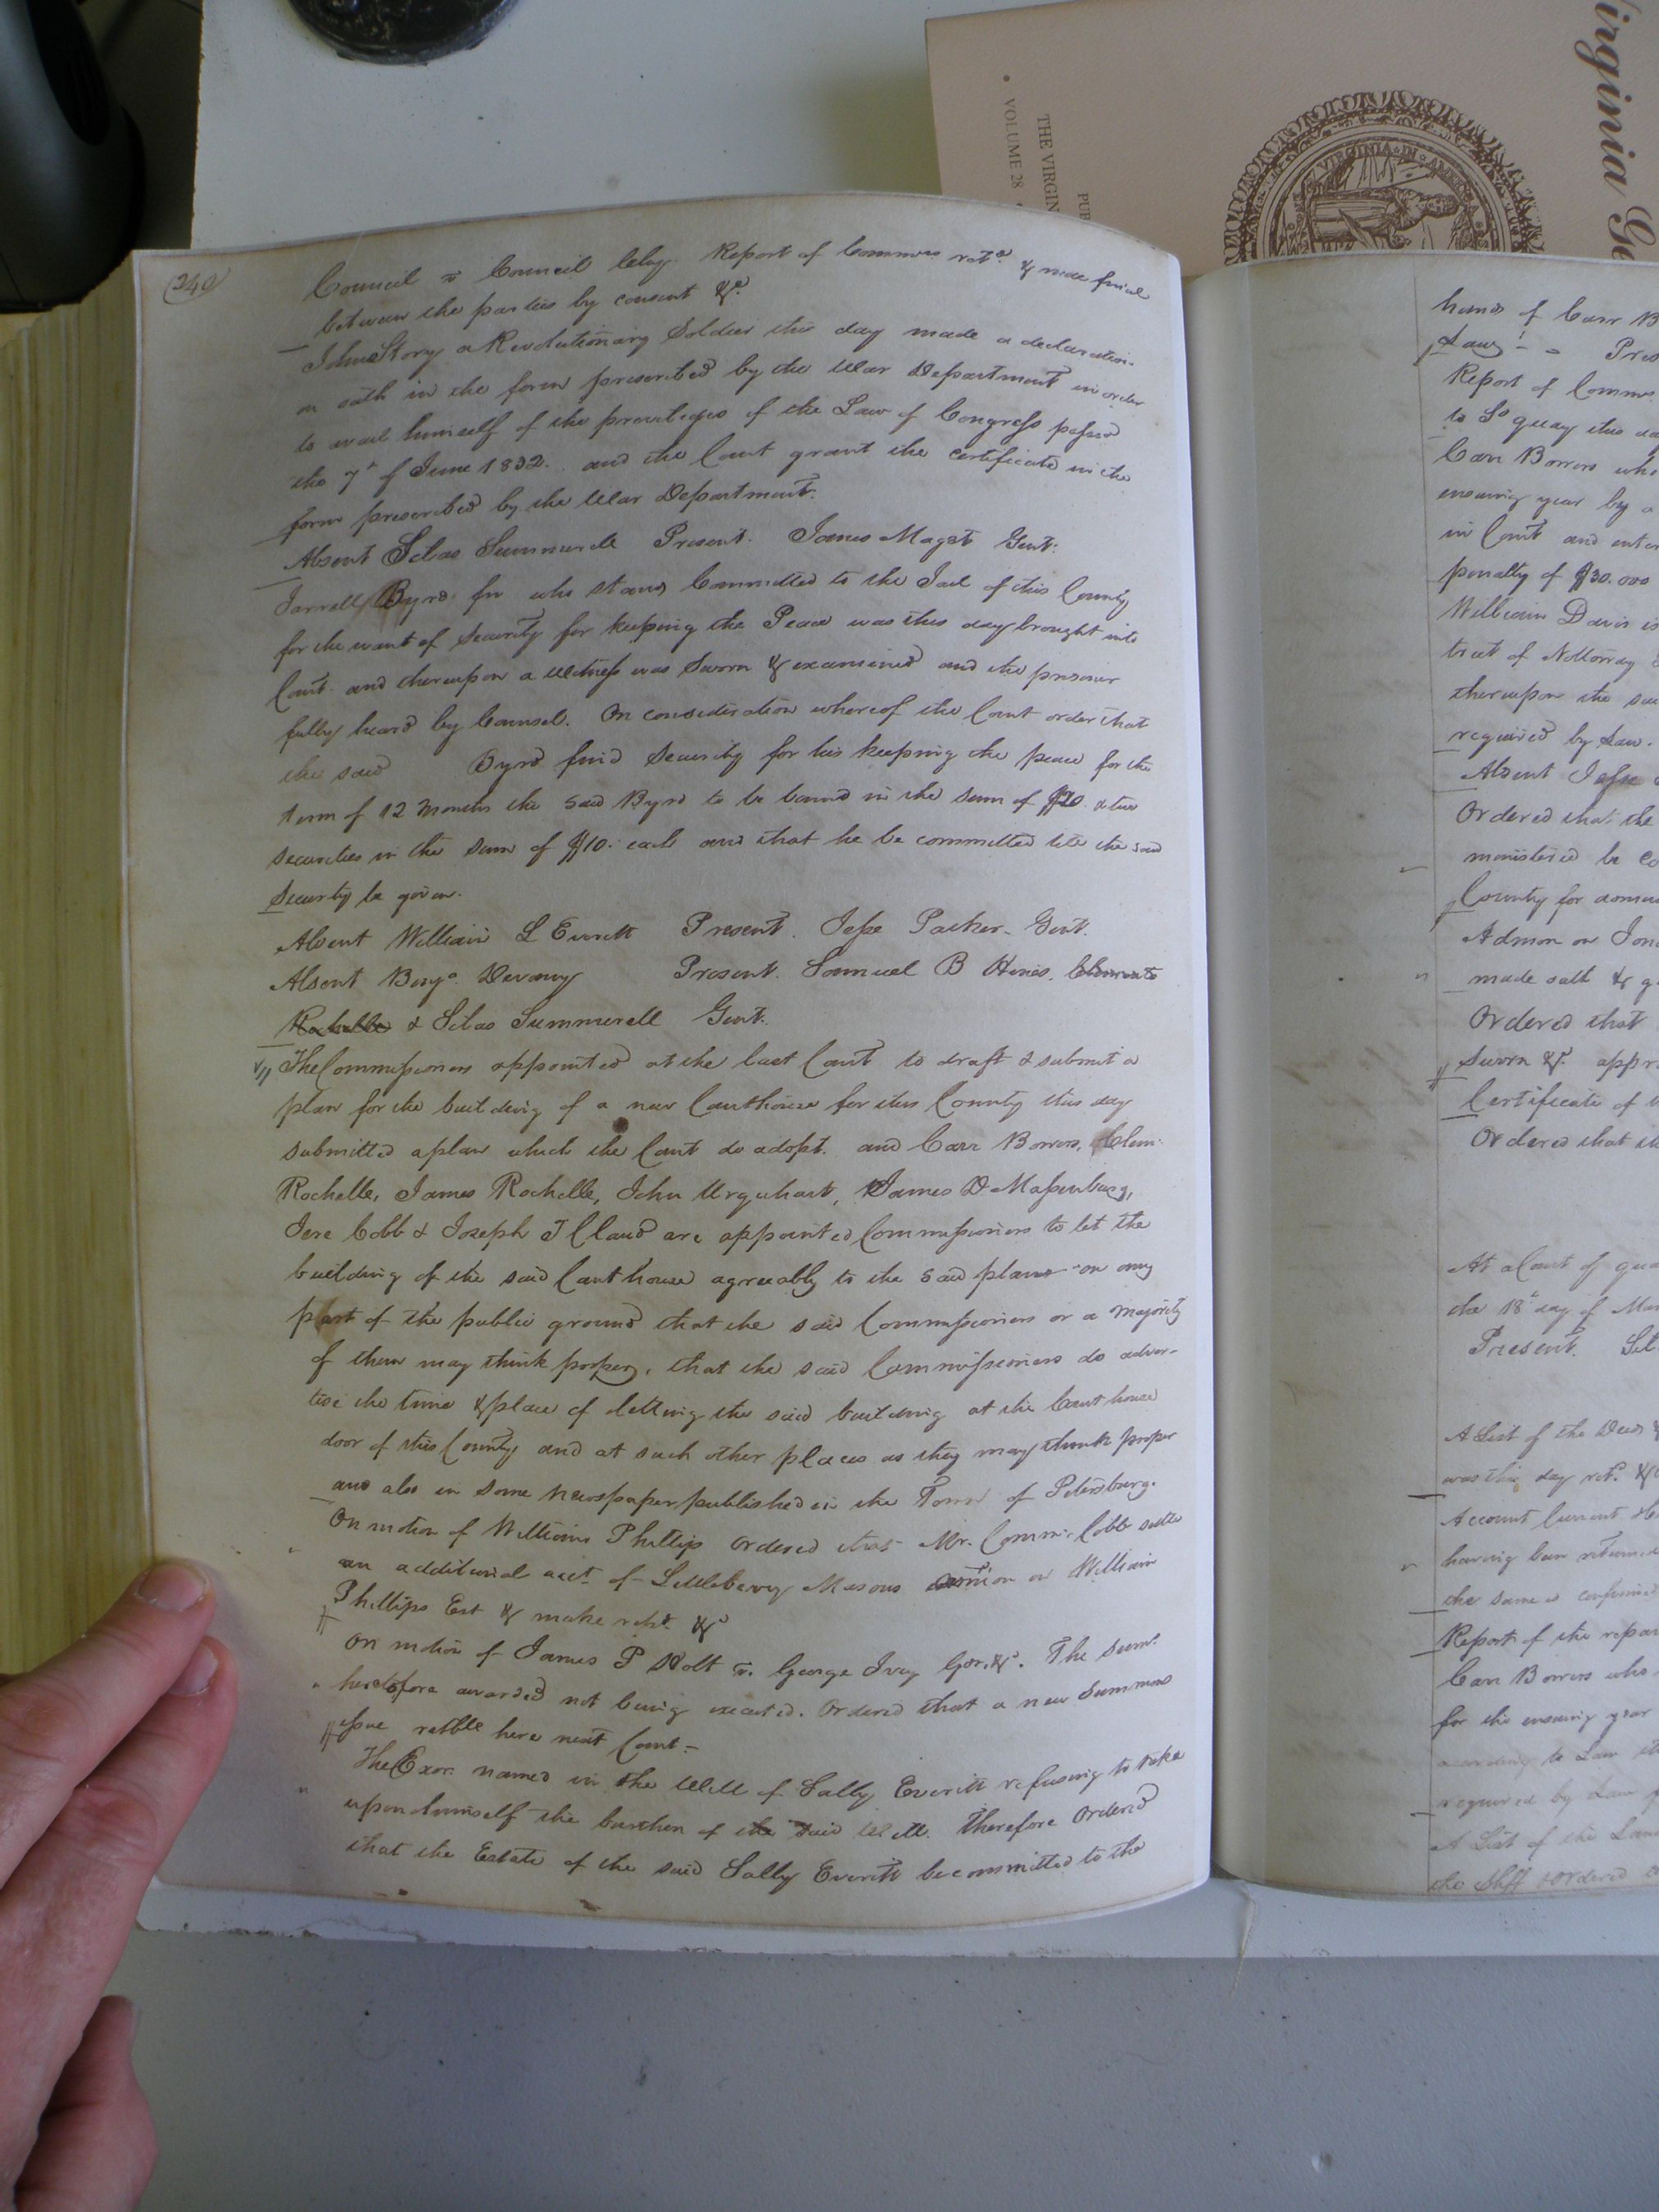 irginia Ge
THE VIRGIN
VOLUME 28
PUB
VIRGINIA IN AMERIC
240
Council vs Council Chy. Report of Commrs retd. & made final
between the parties by consent &c.
John Story a Revolutionary Soldier this day made a declaration
on oath in the form prescribed by the War Department in order
to avail himself of the priviledges of the Law of Congress passed
the 7th of June 1832. and the Court grant the certificate in the
form prescribed by the War Department.
Absent Silas Summerell Present. James Maget Gent.
Jarrell Byrd who stands Committed to the Jail of this County
for the want of Security for keeping the Peace was this day brought into
Court and thereupon a witness was Sworn & examined and the prisoner
fully heard by Counsel. On consideration whereof the Court order that
the said Byrd find Security for his keeping the peace for the
term of 12 months the said Byrd to be bound in the sum of $20 & two
securities in the sum of $10. each and that he be committed till the said
Security be given.
Absent William L Everitt Present. Jesse Parker Gent.
Absent Benja. Devany Present. Samuel B Hines, Clements
Rochelle & Silas Summerell Gent.
The Commissioners appointed at the last Court to draft & submit a
plan for the building of a new Courthouse for this County this day
submitted a plan which the Court do adopt. and Carr Bowers, Clem.
Rochelle, James Rochelle, John Urquhart, James D Massenburg,
Jere Cobb & Joseph T Claud are appointed Commissioners to let the
building of the said Courthouse agreeably to the said plan on any
part of the public ground that the said Commissioners or a majority
of them may think proper, that the said Commissioners do adver-
tise the time & place of letting the said building at the Court house
door of this County and at such other places as they may think proper
and also in some newspaper published in the Town of Petersburg.
On motion of William Phillips Ordered that Mr. Commr. Cobb settle
an additional acct. of Littleberry Masons admion on William
Phillips Est & make rept. &c
On motion of James P Holt vs. George Ivey Gdr. &c. The Sums.
heretofore awarded not being executed. Ordered that a new Summons
issue retble here next Court.
The Exor. named in the Will of Sally Everitt refusing to take
upon himself the burthen of the said Will. Therefore Ordered
that the Estate of the said Sally Everitt be committed to the
hands of Carr B
Law
Pres
Report of Commrs
ensuing year by a
in Court and enter
penalty of $30.000
William Davis is
trict of Nottoway
thereupon the sai
required by Law.
Absent Jesse
Ordered that the
County for
Admon on
made oath & g
Ordered that
Sworn &c. appr
Certificate of
Ordered that
At a Court of qua
the 18th day of
Present. Sil
A List of the Deeds &
was this day ret.
Account Current
having been returned
the same is confirmed
Report of the
Carr Bowers who
for the ensuing year
according to Law
required by Law
A List of the